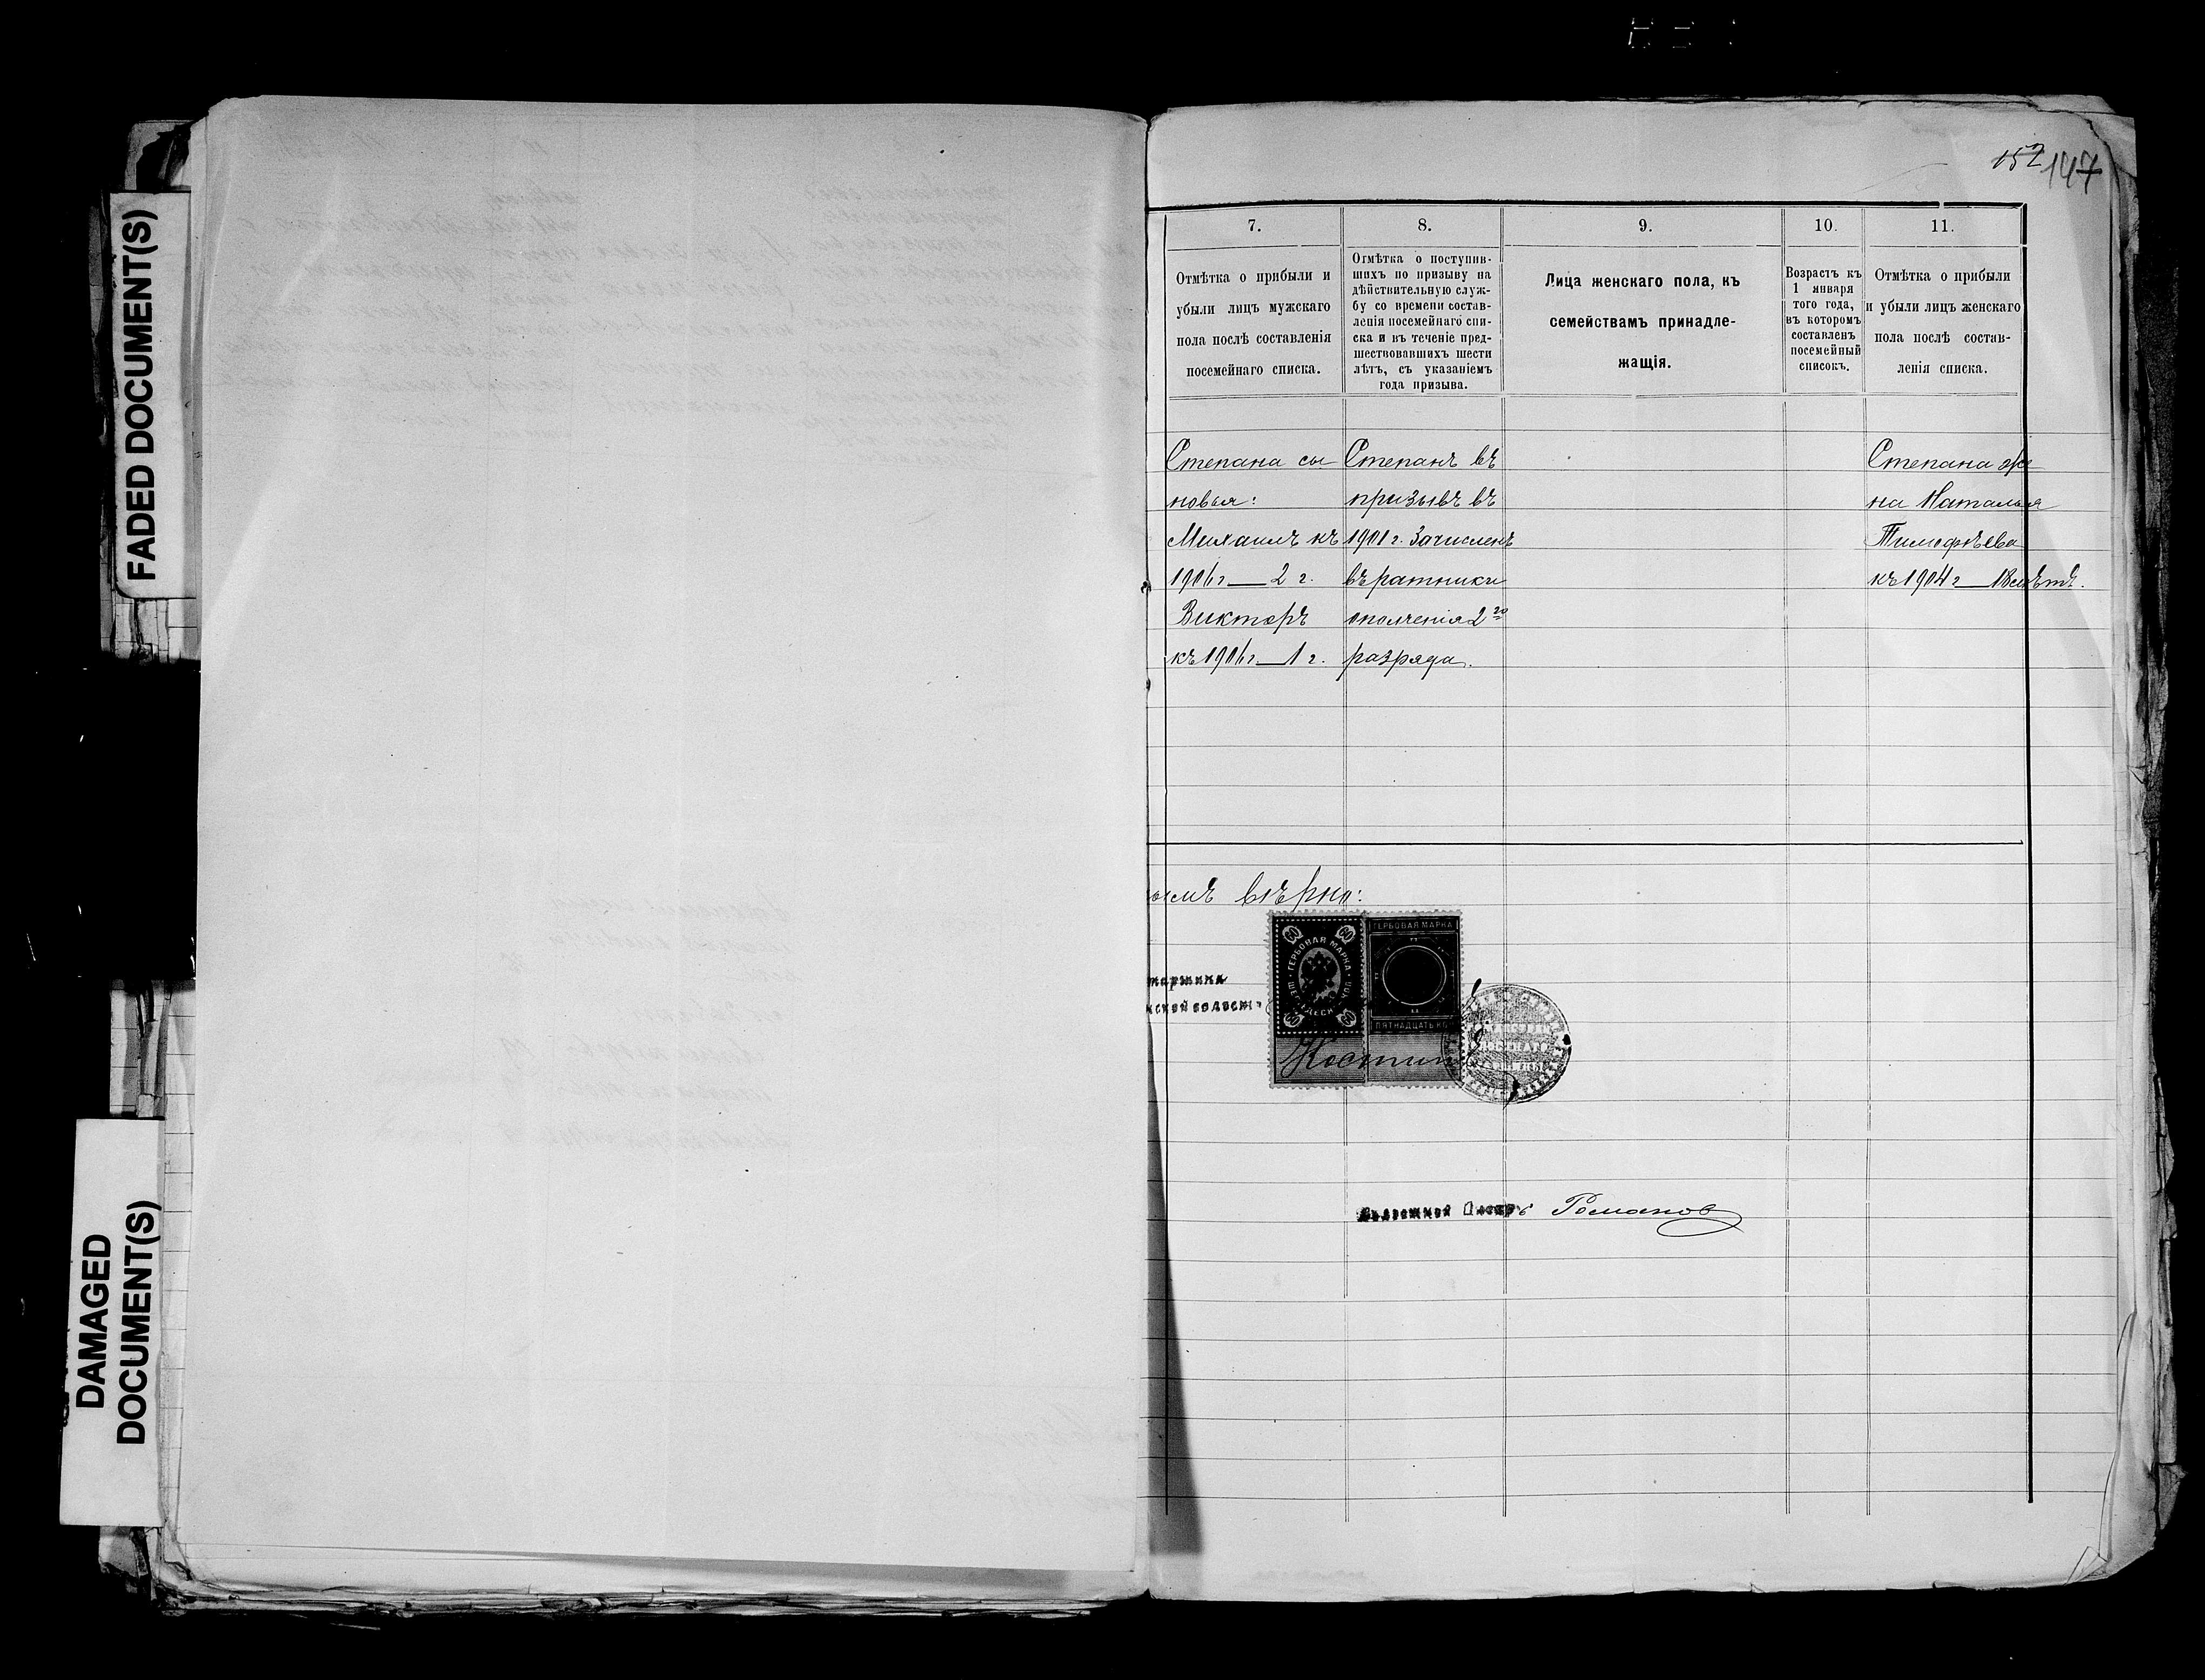 FADED DOCUMENT(S)
DAMAGED
DOCUMENT(S)
152 147
7.
Отмѣтка о прибыли и
убыли лицъ мужскаго
пола послѣ составленія
посемейнаго списка.
8.
Отмѣтка о поступив-
шихъ по призыву на
дѣйствительную служ-
бу со времени состав-
ленія посемейнаго спи-
ска и въ теченіе пред-
шествовавшихъ шести
лѣтъ, съ указаніемъ
года призыва.
9.
Лица женскаго пола, къ
семействамъ принадле-
жащія.
10.
Возрастъ къ
1 января
того года,
въ которомъ
составленъ
посемейный
списокъ.
11.
Отмѣтка о прибыли
и убыли лицъ женскаго
пола послѣ состав-
ленія списка.
Степана сы
новья:
Михаилъ къ
1906 г — 2 г.
Викторъ
къ 1906 г — 1 г.
Степанъ въ
призывъ въ
1901 г. Зачисленъ
въ ратники
ополченія 2го
разряда.
Степана же
на Наталья
Тимофѣева
къ 1904 г — 18 лѣтъ.
вѣрно:
ГЕРБОВАЯ МАРКА
60 60
60 60
ГЕРБОВАЯ МАРКА
ПЯТНАДЦАТЬ
Костин
Волостной Писарь Романов